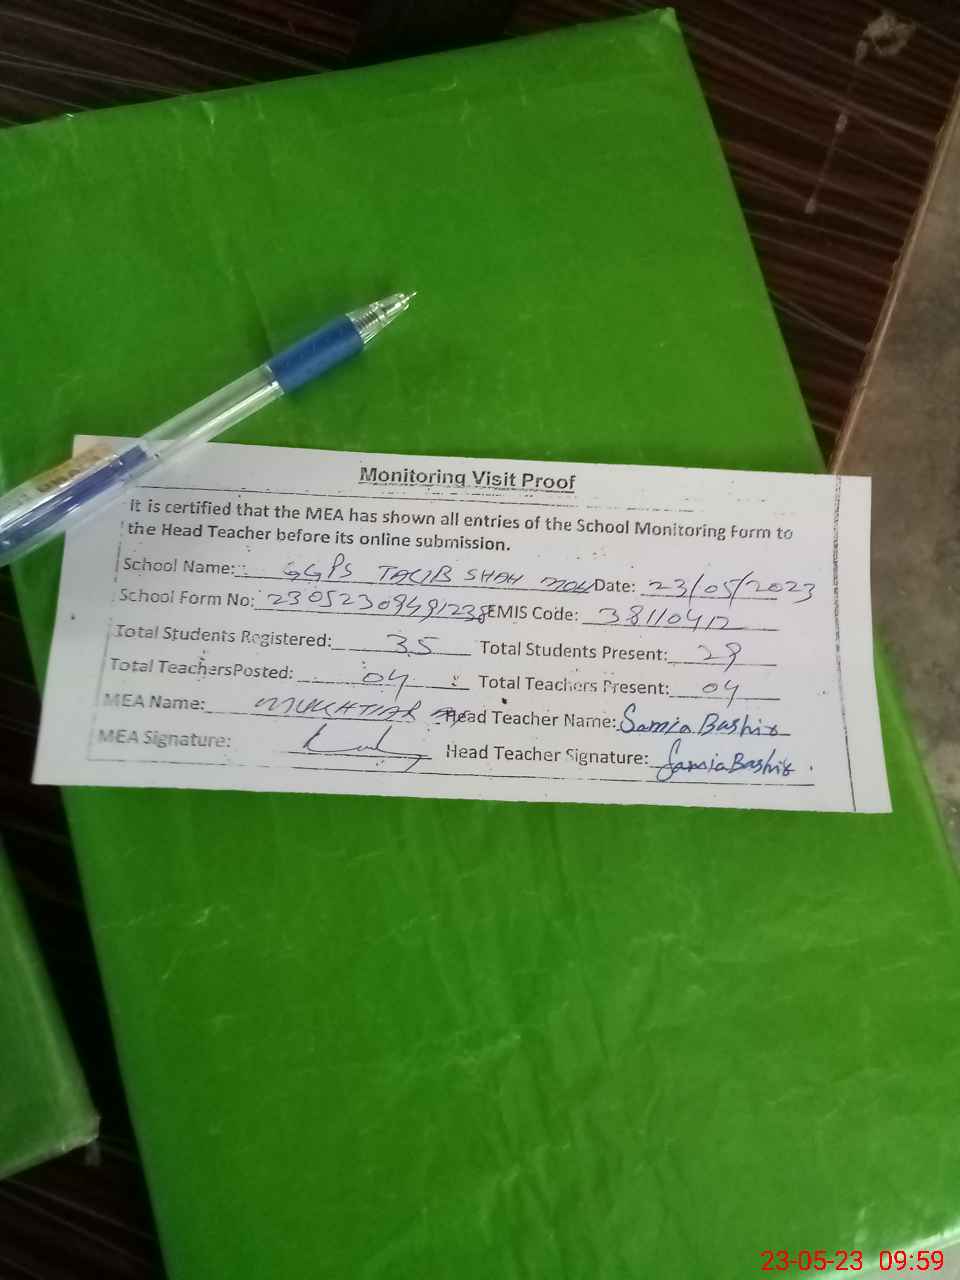 Monitoring Visit Proof
It is certified that the MEA has shown all entries of the School Monitoring Form to
the Head Teacher before its online submission.
School Name: GGPS TALIB SHAH Date: 23/05/2023
School Form No: EMIS Code: 38110412
Total Students Registered: 35 Total Students Present: 29
Total TeachersPosted: 04 Total Teachers Present: 04
MEA Name: MUKHTIAR Head Teacher Name: Samia Bashir
MEA Signature: Head Teacher Signature: Samia Bashir
23-05-23 09:59